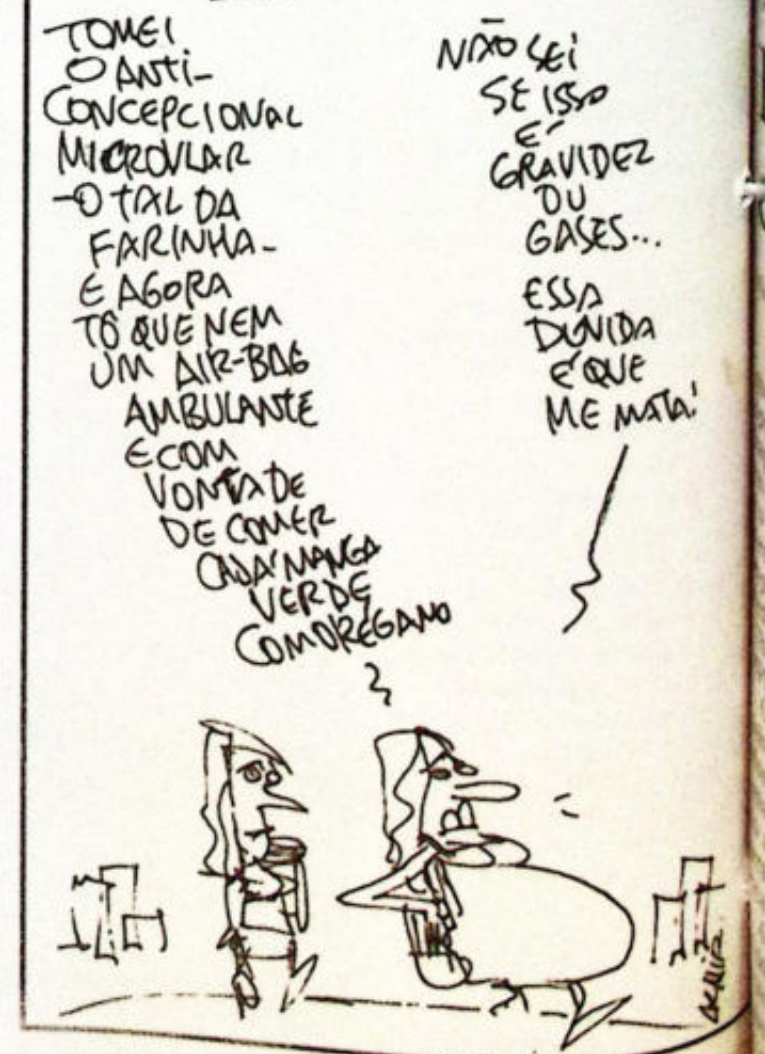 TOMEI
O ANTI-
CONCEPCIONAL
MICROVLAR
-O TAL DA
FARINHA-
E AGORA
TÔ QUE NEM
UM AIR-BAG
AMBULANTE
E COM
VONTADE
DE COMER
CAJÁ-MANGA
VERDE
COM ORÉGANO
NÃO SEI
SE ISSO
É
GRAVIDEZ
OU
GASES...
ESSA
DÚVIDA
É QUE
ME MATA!